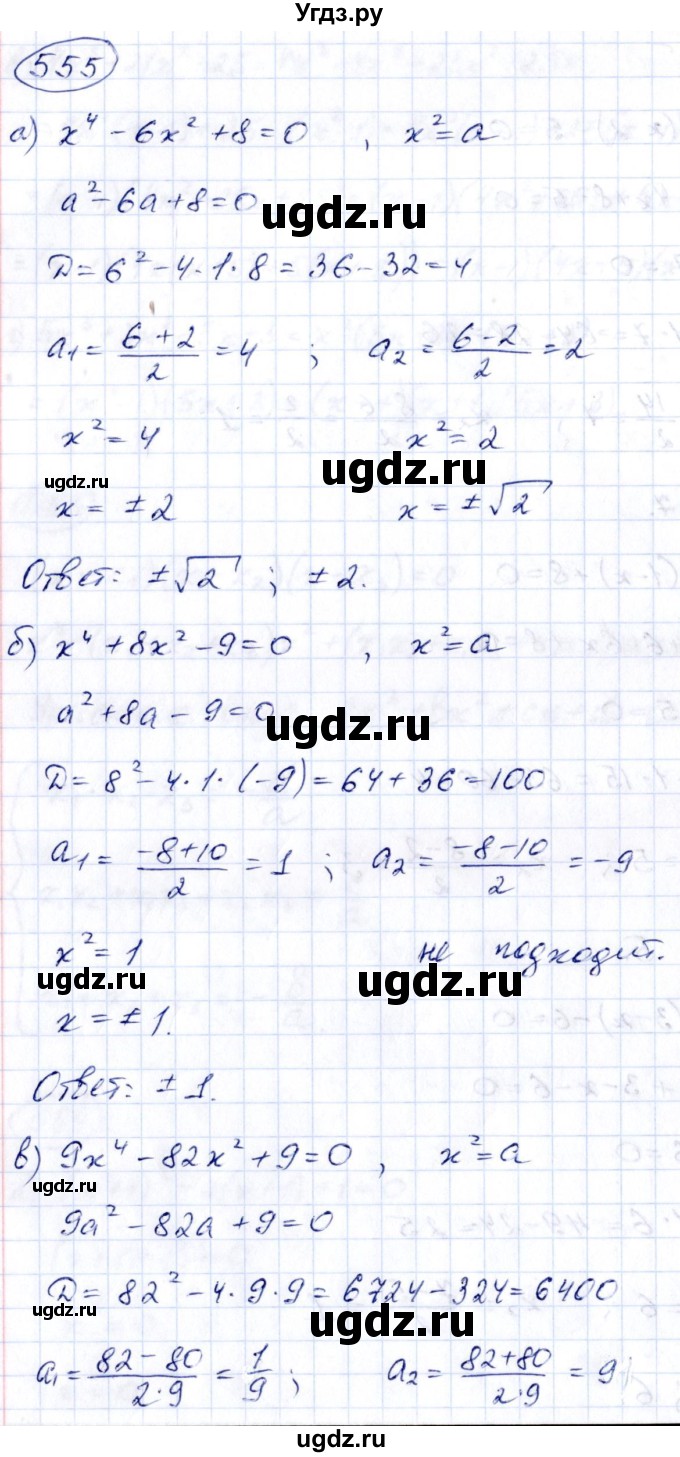 Угдз.ру
555
а) x⁴ - 6x² + 8 = 0 , x² = a
a² - 6a + 8 = 0
ugdz.ru
Д = 6² - 4·1·8 = 36 - 32 = 4
ugdz.ru
a₁ = (6+2)/2 = 4 ; a₂ = (6-2)/2 = 2
x² = 4 x² = 2
ugdz.ru ugdz.ru
x = ±2 x = ±√2
Ответ: ±√2 ; ±2.
б) x⁴ + 8x² - 9 = 0 , x² = a
a² + 8a - 9 = 0
ugdz.ru
Д = 8² - 4·1·(-9) = 64 + 36 = 100
a₁ = (-8+10)/2 = 1 ; a₂ = (-8-10)/2 = -9
x² = 1 не подходит.
ugdz.ru ugdz.ru
x = ±1.
Ответ: ±1.
в) 9x⁴ - 82x² + 9 = 0 , x² = a
ugdz.ru
9a² - 82a + 9 = 0
Д = 82² - 4·9·9 = 6724 - 324 = 6400
ugdz.ru ugdz.ru
a₁ = (82-80)/(2·9) = 1/9 ; a₂ = (82+80)/(2·9) = 9
ugdz.ru